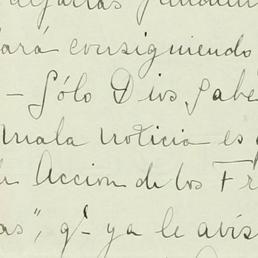 algunas
ará consiguiendo
— Sólo Dios sabe
mala noticia es q
Accion de los Fr
as", q.e ya le avis